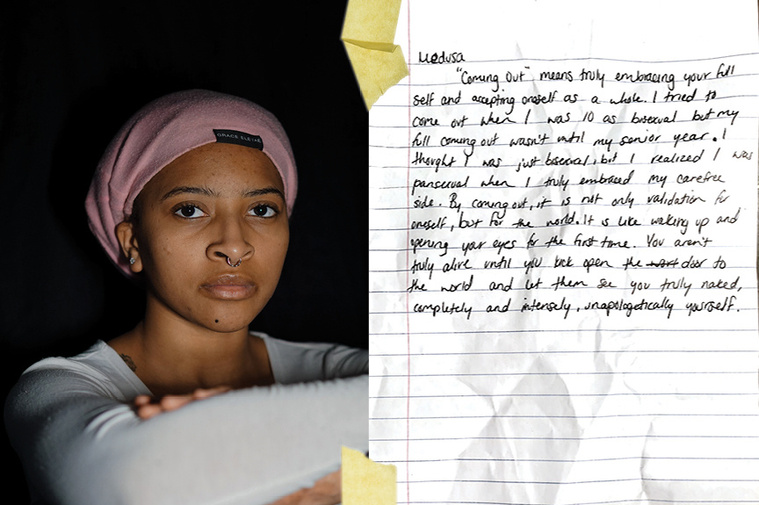 GRACE ELEYAE
Medusa
"Coming Out" means truly embracing your full
self and accepting oneself as a whole. I tried to
come out when I was 10 as bisexual but my
full coming out wasn't until my senior year. I
thought I was just bisexual, but I realized I was
pansexual when I truly embraced my carefree
side. By coming out, it is not only validation for
oneself, but for the world. It is like waking up and
opening your eyes for the first time. You aren't
truly alive until you kick open the door to
the world and let them see you truly naked,
completely and intensely, unapologetically yourself.